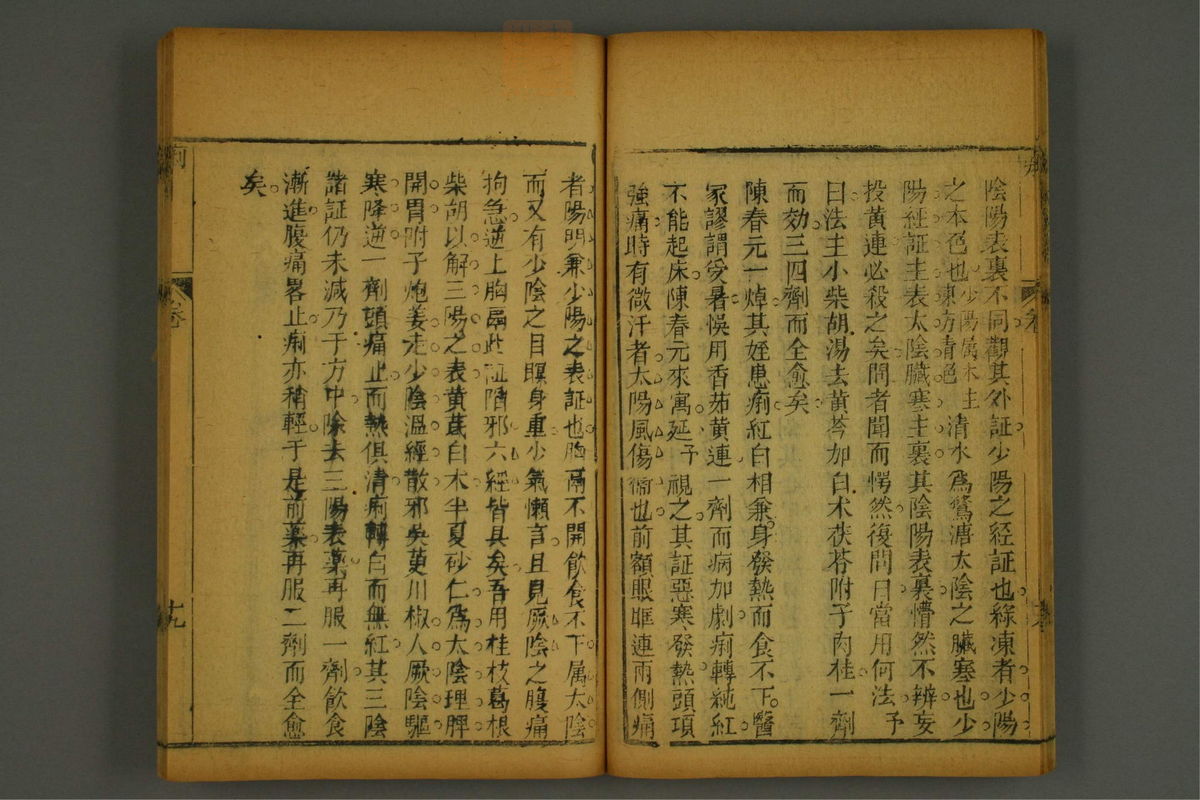 陰陽表裏不同觀其外証少陽之経証也綠凍者少陽
之本色也少陽属木主東方青色清水爲鶩溏太陰之臟寒也少
陽経証主表太陰臟寒主裏其陰陽表裏懵然不辨妄
投黄連必殺之矣問者聞而愕然復問曰當用何法予
曰法主小柴胡湯去黄芩加白术茯苓附子肉桂一劑
而効三四劑而全愈矣
陳春元一焯其姪患痢紅白相兼身發熱而食不下醫
家謬謂受暑悞用香茹黄連一劑而病加劇痢轉純紅
不能起床陳春元來寓延予視之其証惡寒發熱頭項
強痛時有微汗者太陽風傷衞也前額眼眶連両側痛
者陽明兼少陽之表証也胸膈不開飲食不下属太陰
而又有少陰之目瞑身重少氣懶言且見厥陰之腹痛
拘急逆上胸膈此証陰邪六經皆具矣吾用桂枝葛根
柴胡以解三陽之表黄芪白术半夏砂仁爲太陰理脾
開胃附子炮姜走少陰溫經散邪吳萸川椒人厥陰驅
寒降逆一劑頭痛止而熱俱清痢轉白而無紅其三陰
諸証仍未減乃于方中除去三陽表藥再服一劑飲食
漸進腹痛畧止痢亦稍輕于是前藥再服二劑而全愈
矣
痢
卷
十九